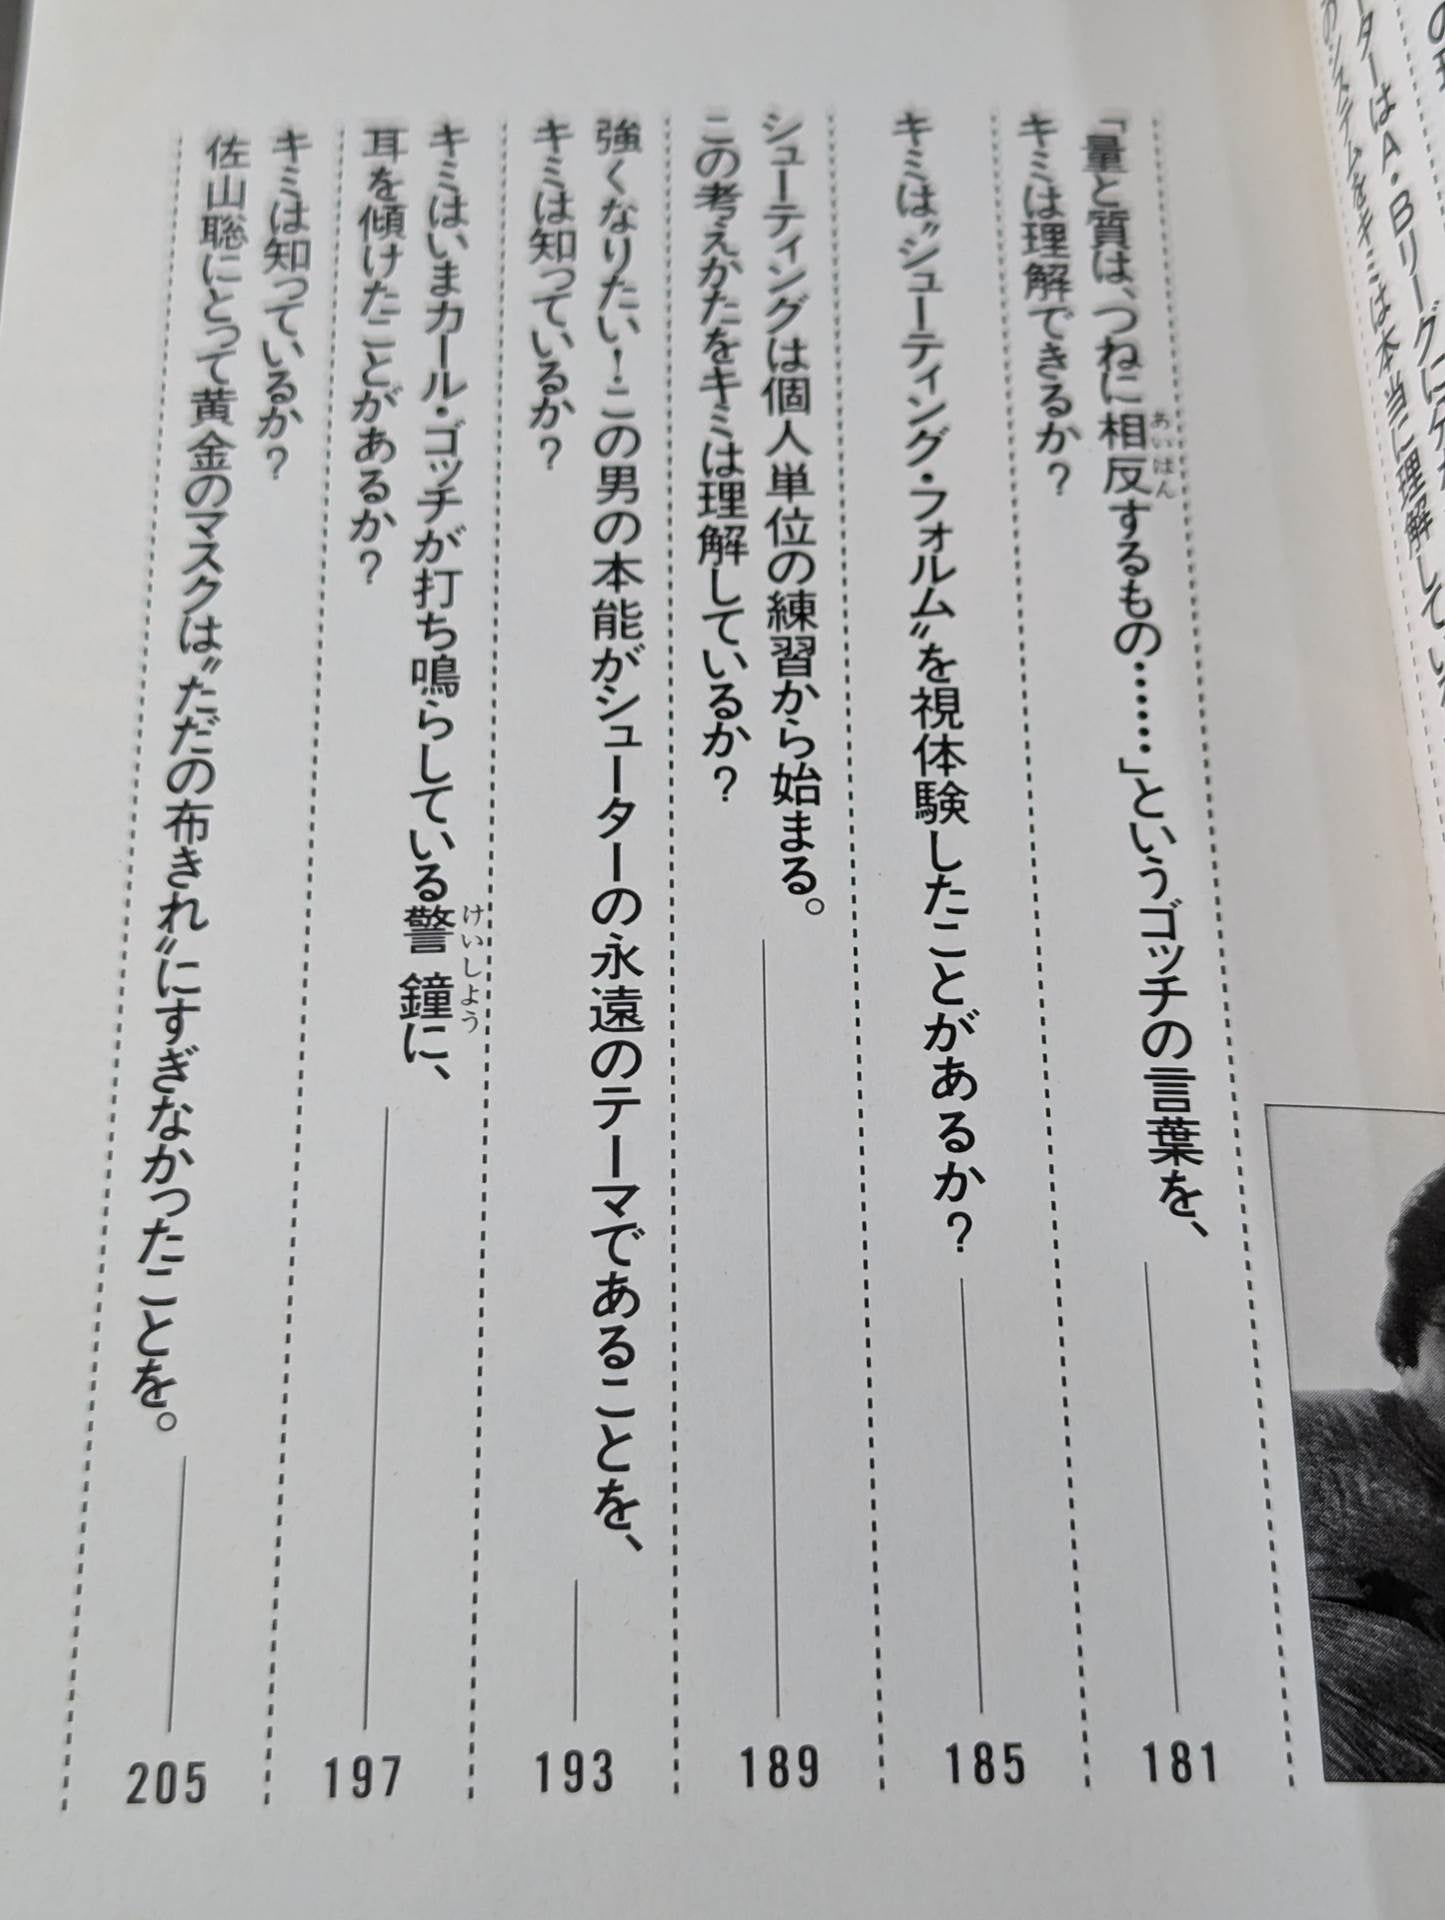 ターはA・Bリーグに
のシステムをキミは本当に理解してい
「量と質は、つねに相反するもの……」というゴッチの言葉を、
あいはん
キミは理解できるか？
181
キミは〝シューティング・フォルム〟を視体験したことがあるか？
185
シューティングは個人単位の練習から始まる。
この考えかたをキミは理解しているか？
189
強くなりたい！この男の本能がシューターの永遠のテーマであることを、
キミは知っているか？
193
キミはいまカール・ゴッチが打ち鳴らしている警鐘に、
けいしよう
耳を傾けたことがあるか？
197
キミは知っているか？
佐山聡にとって黄金のマスクは〝ただの布きれ〟にすぎなかったことを。
205